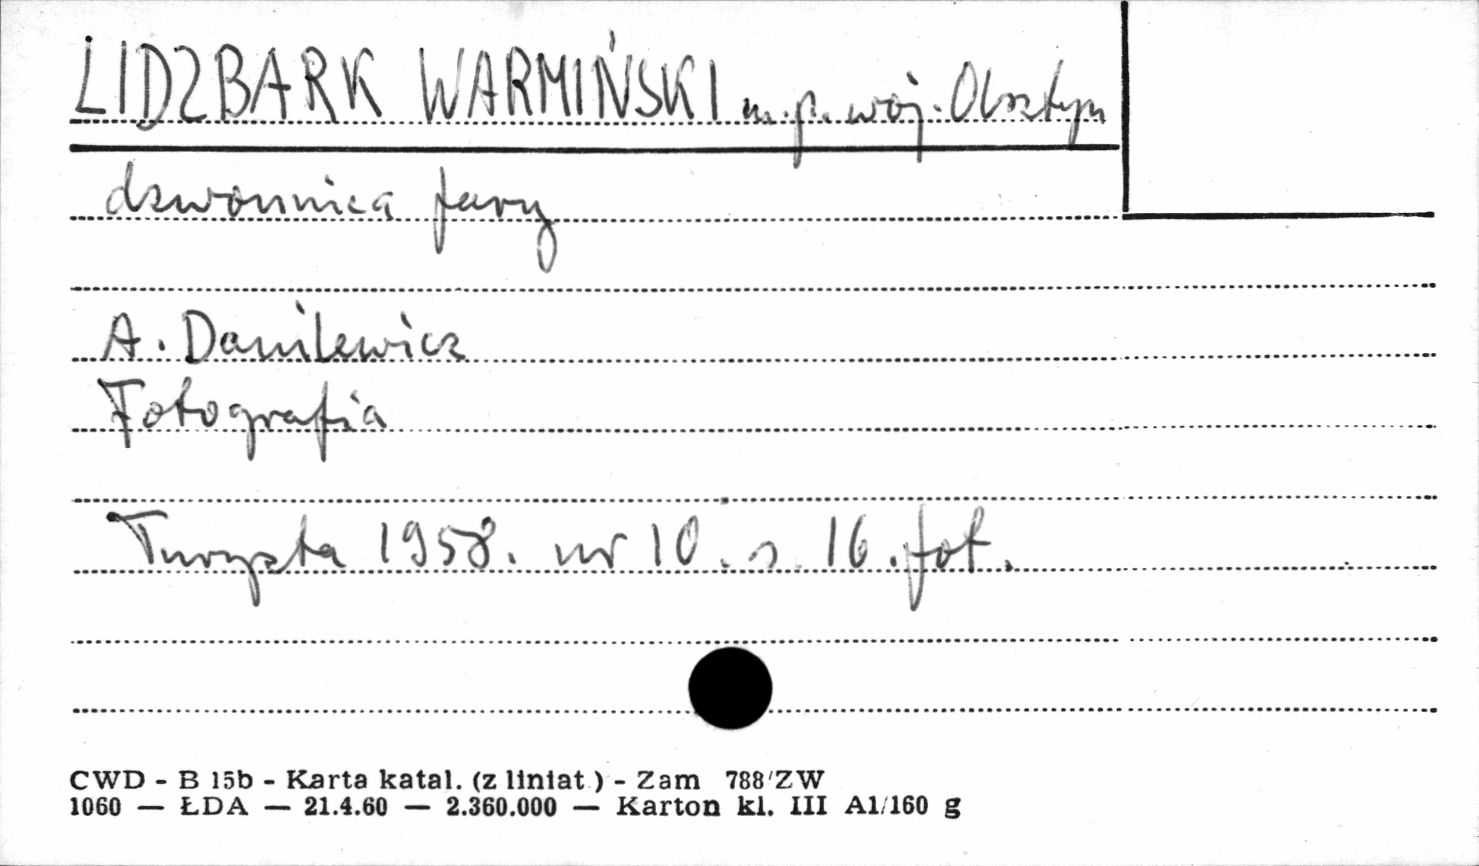 LIDZBARK WARMIŃSKI m.p. woj. Olsztyn
dzwonnica fary
A. Danilewicz
Fotografia
Turysta 1958. nr 10. s. 16. fot.
CWD - B 15b - Karta katal. (z liniat.) - Zam 788/ZW
1060 — ŁDA — 21.4.60 — 2.360.000 — Karton kl. III A1/160 g